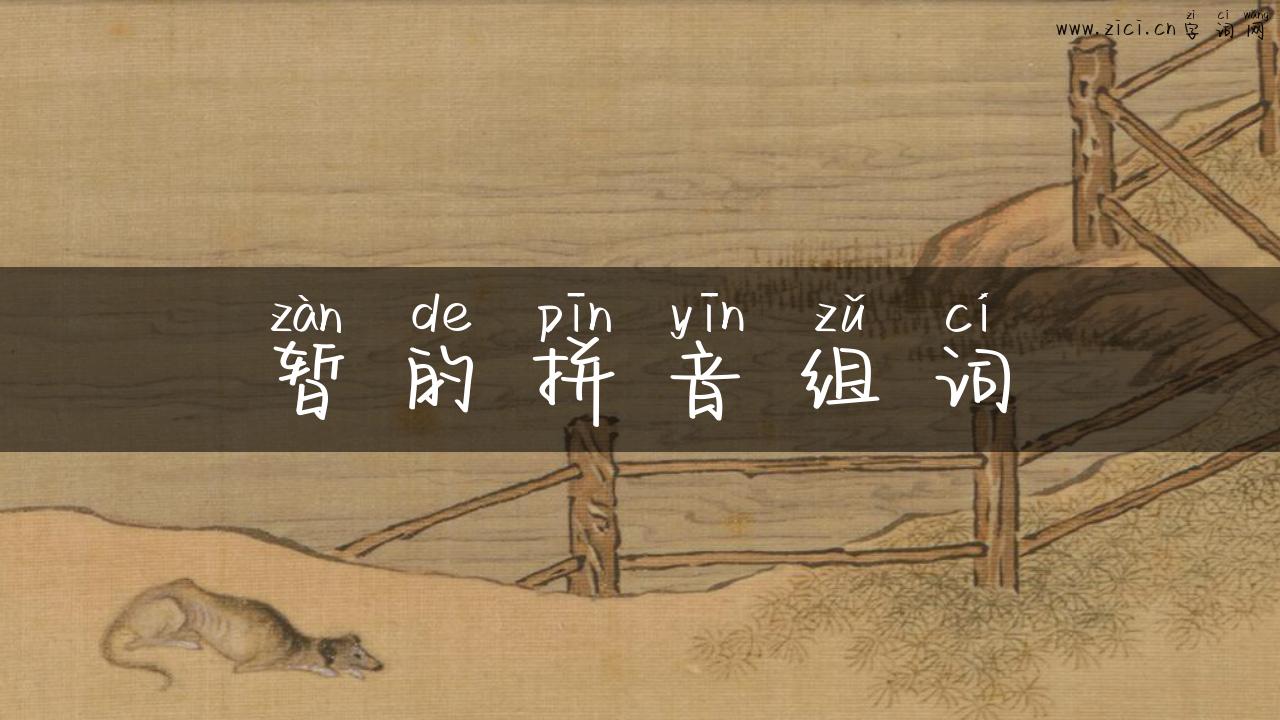 zì cí wǎng
www.zici.cn字词网
zàn de pīn yīn zǔ cí
暂的拼音组词